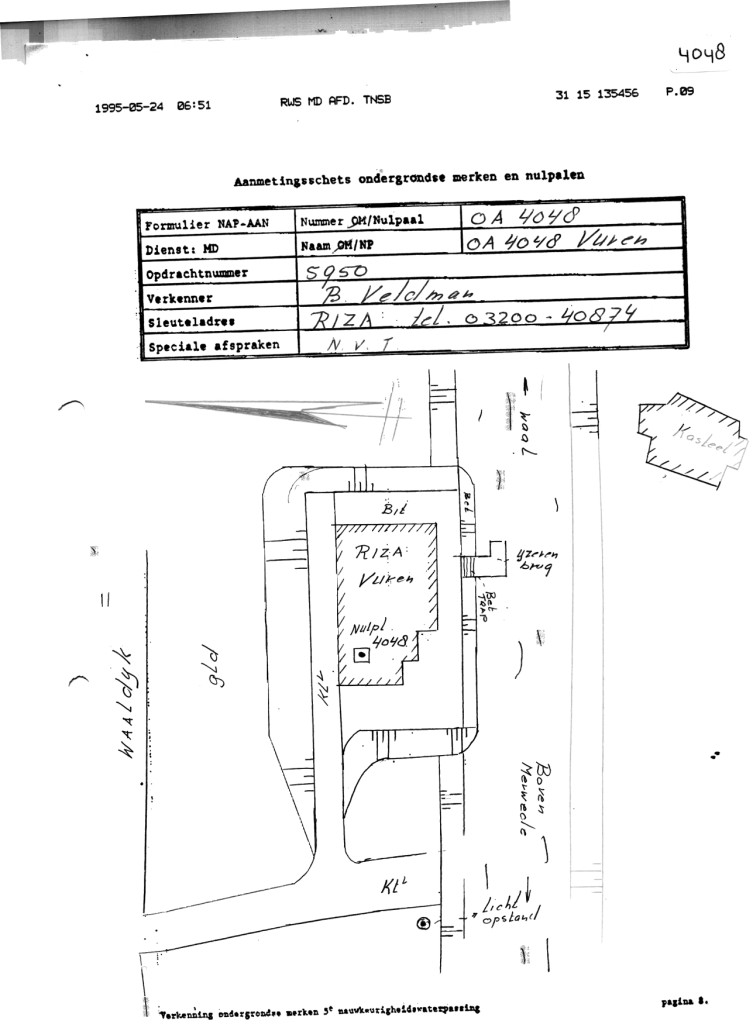 4048
1995-05-24 06:51 RWS MD AFD. TNSB 31 15 135456 P.09
Aanmetingsschets ondergrondse merken en nulpalen
Formulier NAP-AAN Nummer OM/Nulpaal OA 4048
Dienst: MD Naam OM/NP OA 4048 Vuren
Opdrachtnummer 5950
Verkenner B. Veldman
Sleuteladres RIZA tel. 03200-40874
Speciale afspraken N.V.T
Waal
Kasteel
Bit
Bet
RIZA
Vuren
Yzeren
brug
Bet
Trap
Nulpl
4048
WAALdyk
gld
Boven
Merwede
Licht
opstand
Verkenning ondergrondse merken 5e nauwkeurigheidswaterpassing
pagina 8.